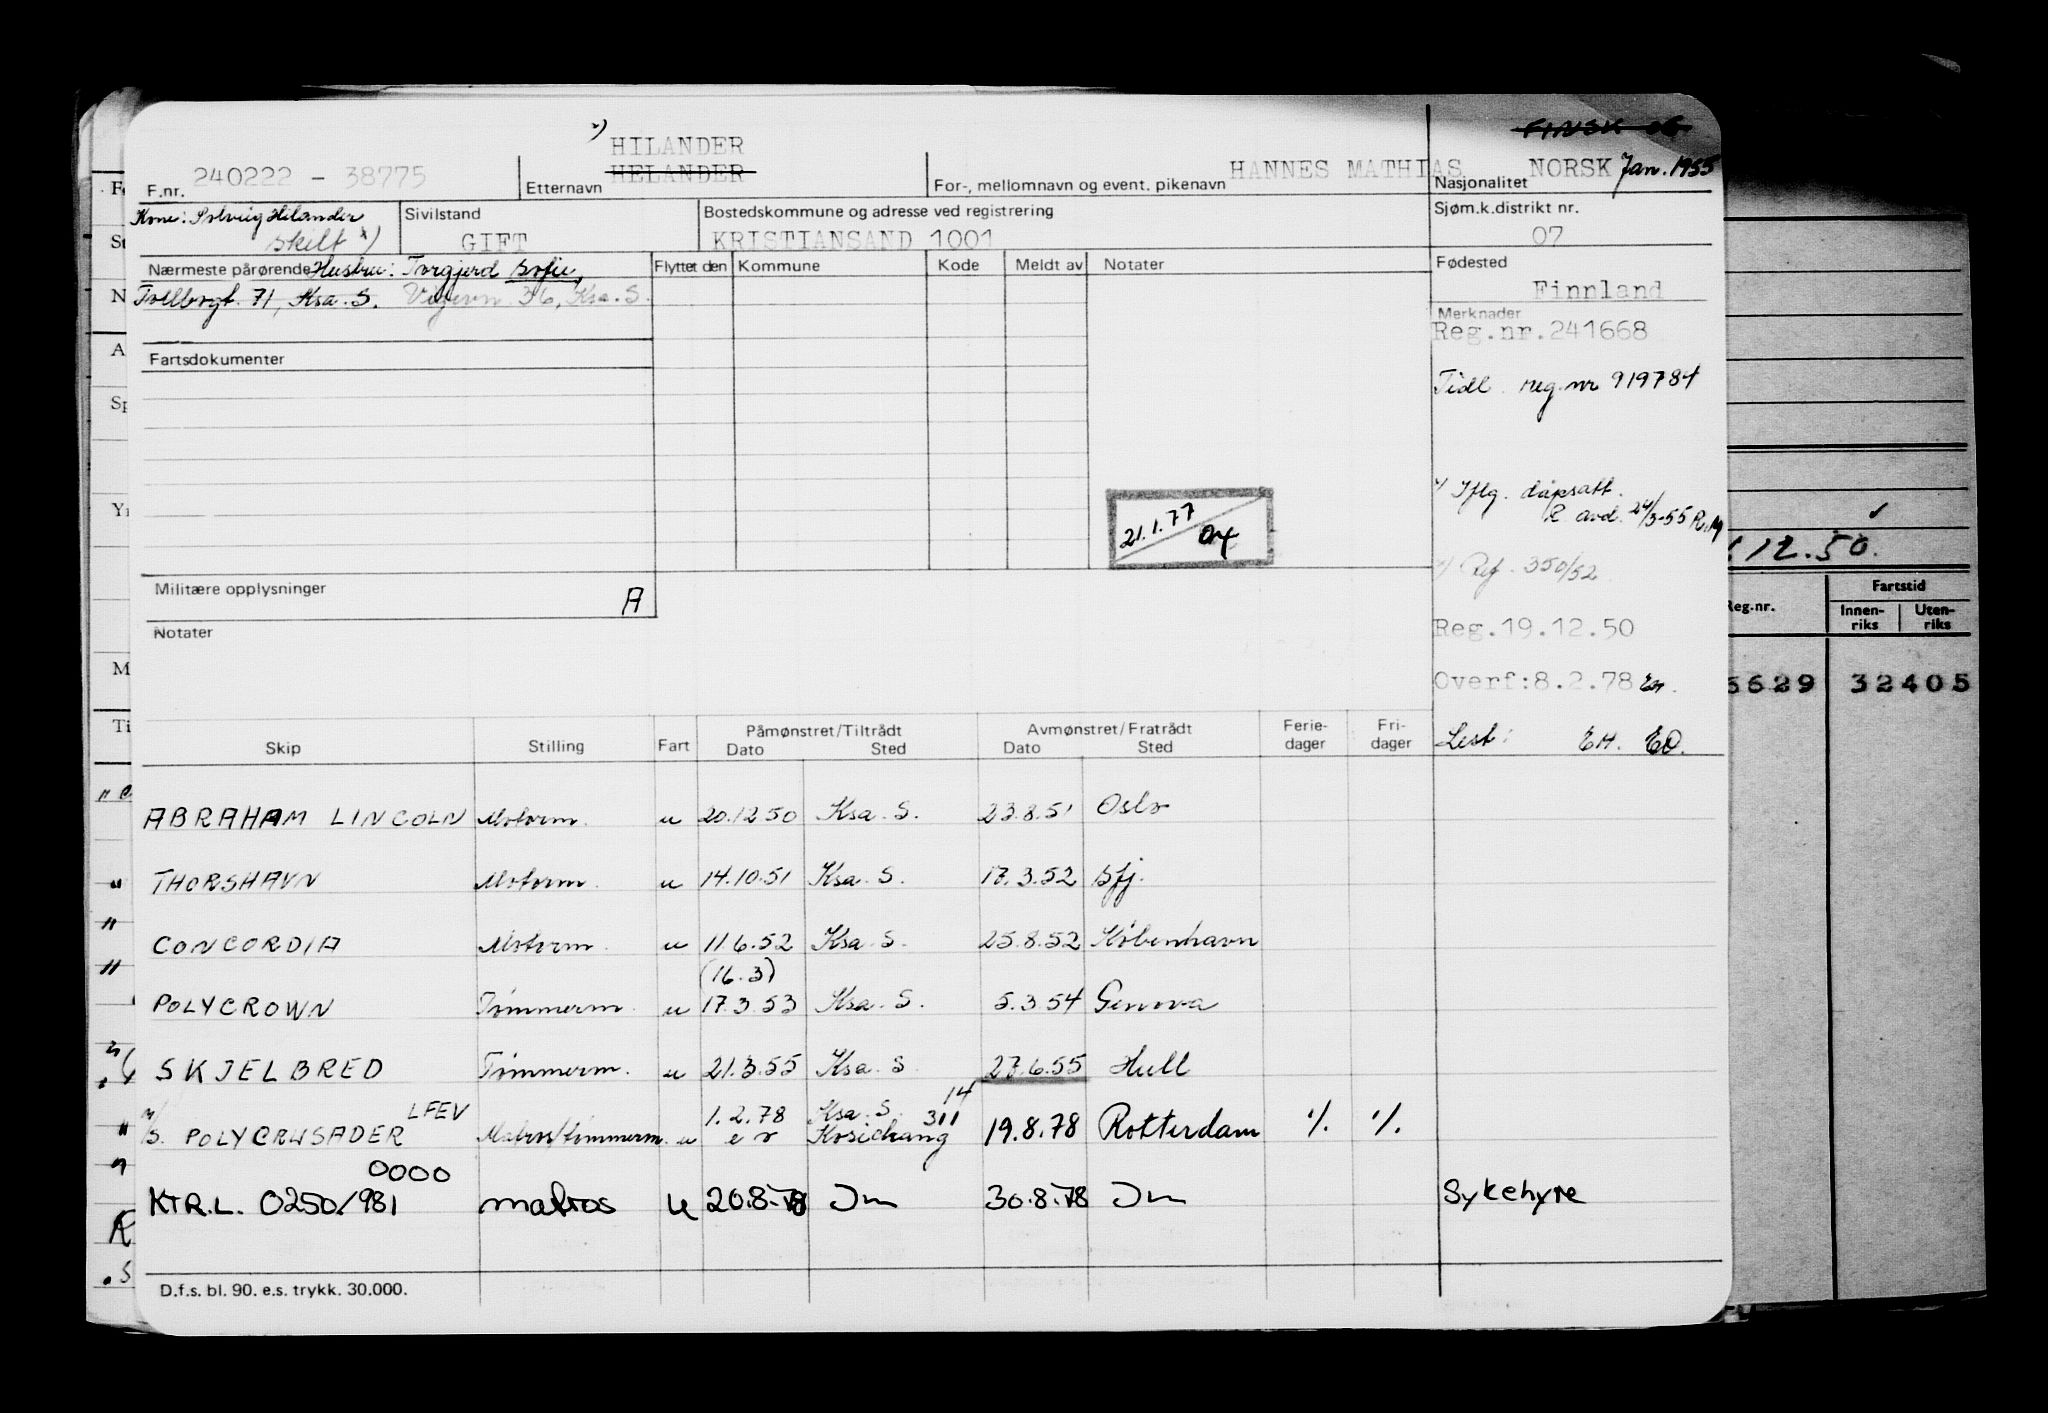 *)
HILANDER
HELANDER
FINSK
F.nr. 240222 - 38775
Etternavn
For-, mellomnavn og event. pikenavn HANNES MATHIAS
Nasjonalitet NORSK Jan. 1955
Kone: Solveig Hilander
skilt *)
Sivilstand
GIFT
Bostedskommune og adresse ved registrering
KRISTIANSAND 1001
Sjøm.k.distrikt nr.
07
Nærmeste pårørende Hustru: Torgjerd Sofie,
Tollbogt. 71, Ksa. S. Vigevn. 36, Ksa. S.
Flyttet den Kommune Kode Meldt av Notater
Fødested
Finnland
Merknader
Reg.nr.241668
Fartsdokumenter
Tidl. reg.nr 919784
*) Iflg. dåpsatt.
R avd. 24/3-55 R.M
21.1.77
*) Ref. 350/52
Militære opplysninger A
Notater
Reg.19.12.50
Overf:8.2.78 EH.
Lest: EH. EO.
Skip Stilling Fart Påmønstret/Tiltrådt Dato Sted Avmønstret/Fratrådt Dato Sted Ferie-dager Fri-dager
ABRAHAM LINCOLN Motorm. u 20.12.50 Ksa. S. 23.8.51 Oslo
THORSHAVN Motorm. u 14.10.51 Ksa. S. 17.3.52 Sfj.
CONCORDIA Motorm. u 11.6.52 Ksa. S. 25.8.52 København
(16.3)
POLYCROWN Tømmerm. u 17.3.53 Ksa. S. 5.3.54 Genova
SKJELBRED Tømmerm. u 21.3.55 Ksa. S 27.6.55 Hull
LFEV 1.2.78 Ksa. S. 311 14
S. POLYCRUSADER Matros/tømmerm. u e r Kosichang 19.8.78 Rotterdam % %
0000
KTR.L. 0250/981 matros u 20.8.78 Jm 30.8.78 Jm Sykehyre
D.f.s. bl. 90. e.s. trykk. 30.000.
12.50.
Reg.nr. Fartstid
Innen-riks Uten-riks
5629 32405